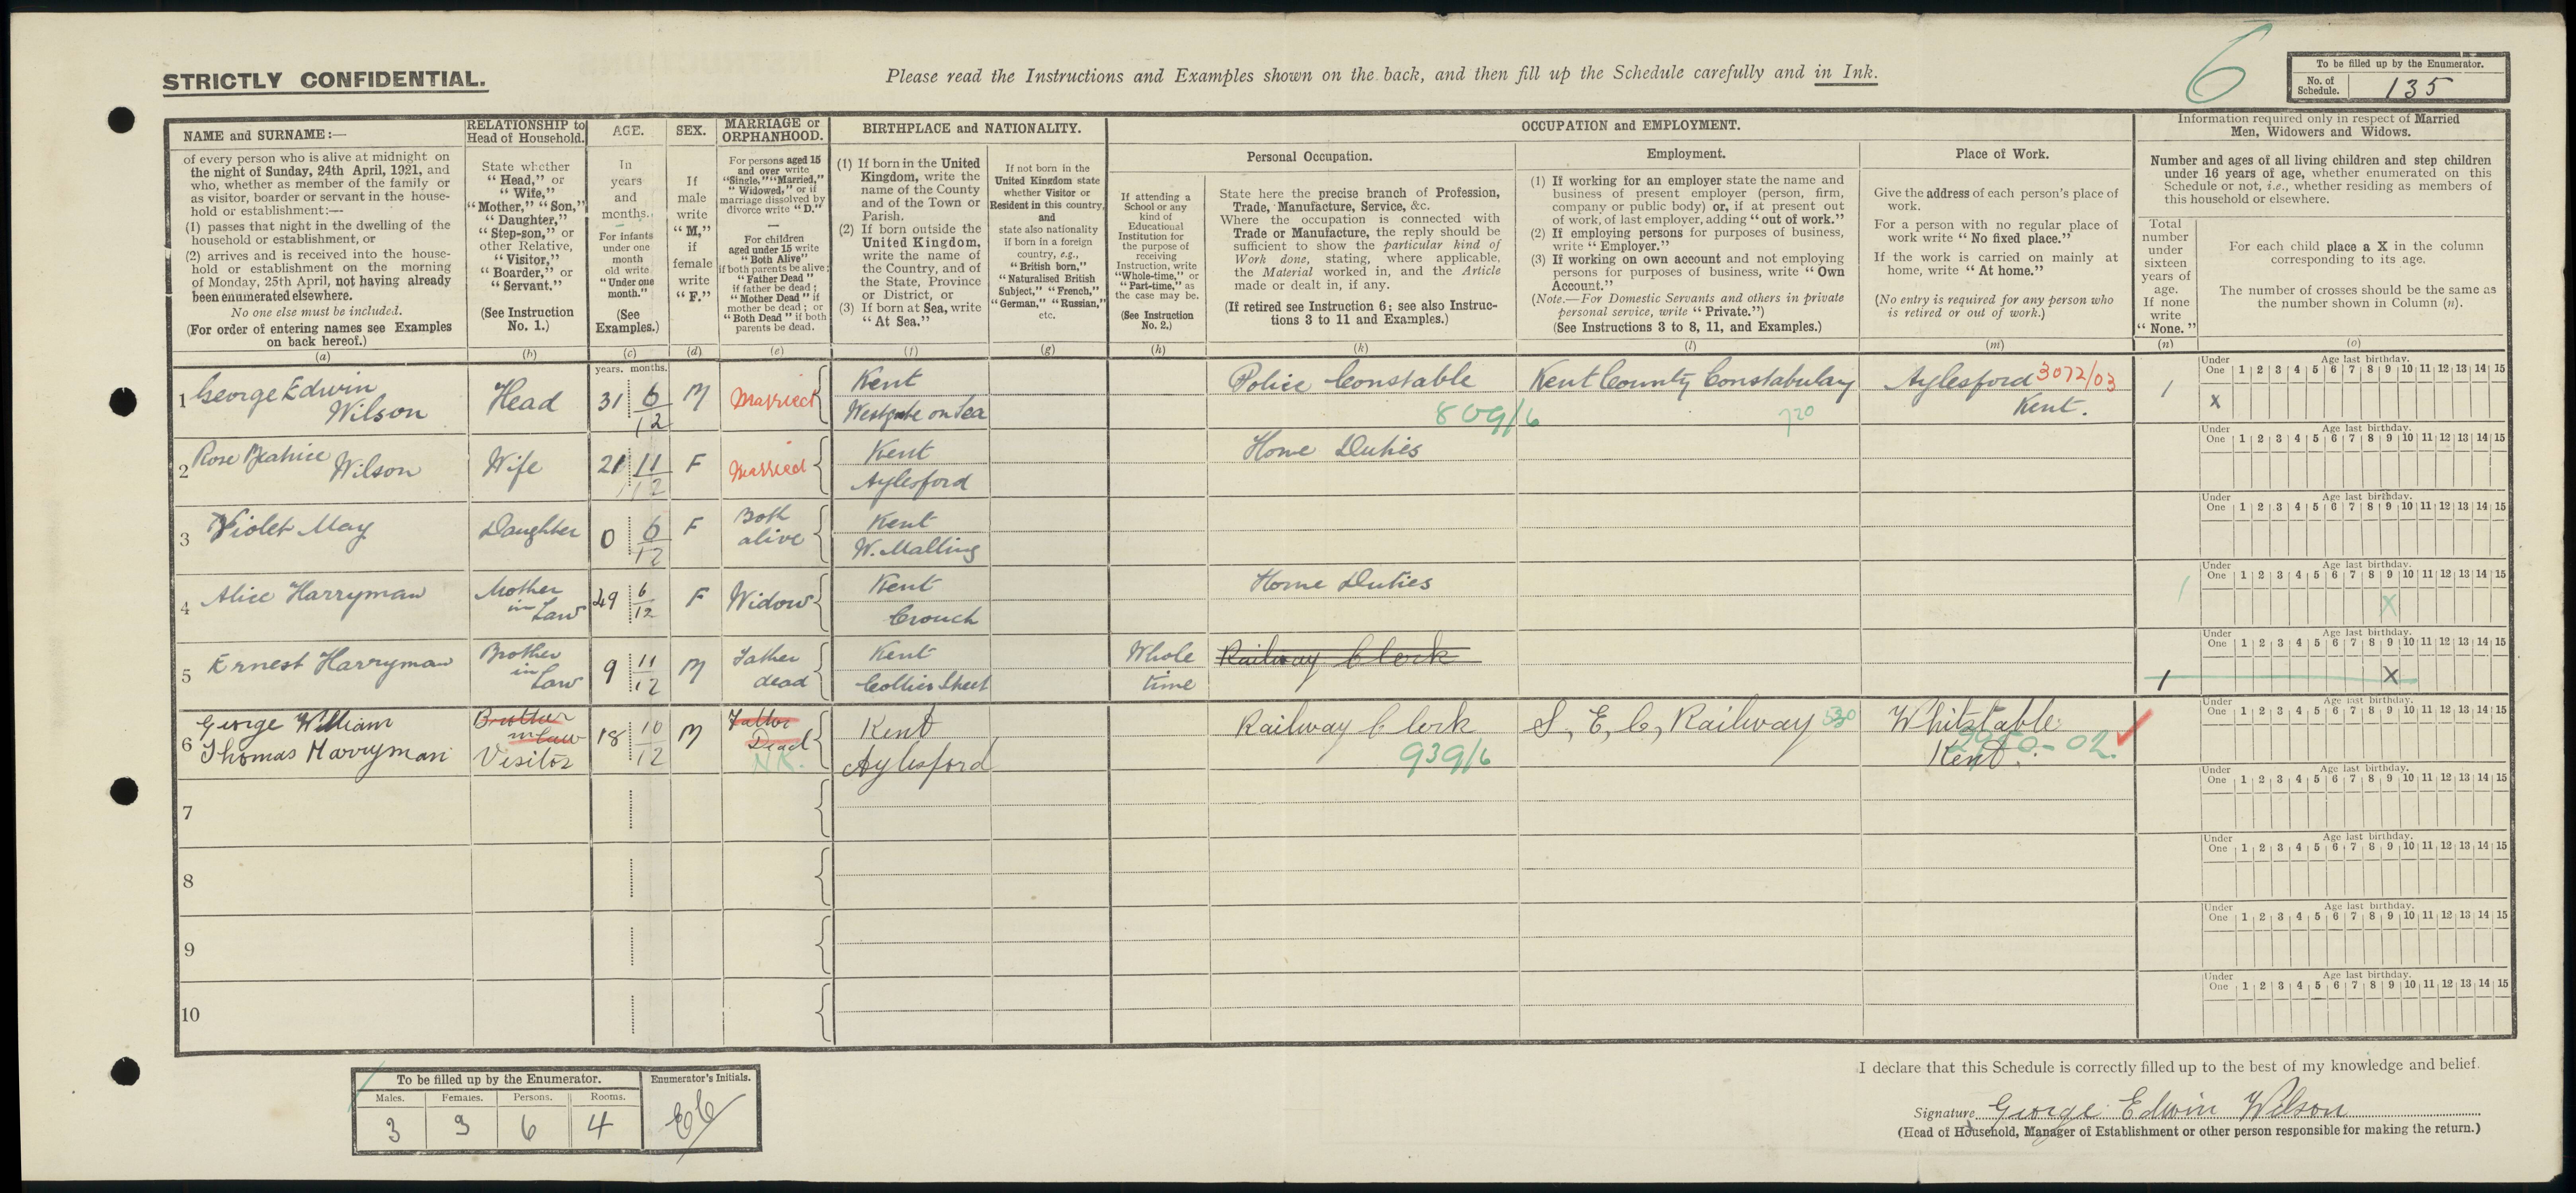 6
STRICTLY CONFIDENTIAL.
Please read the Instructions and Examples shown on the back, and then fill up the Schedule carefully and in Ink.
To be filled up by the Enumerator.
No. of Schedule. 135
NAME and SURNAME:—
of every person who is alive at midnight on
the night of Sunday, 24th April, 1921, and
who, whether as member of the family or
as visitor, boarder or servant in the house-
hold or establishment:—
(1) passes that night in the dwelling of the
household or establishment, or
(2) arrives and is received into the house-
hold or establishment on the morning
of Monday, 25th April, not having already
been enumerated elsewhere.
No one else must be included.
(For order of entering names see Examples
on back hereof.)
(a)
RELATIONSHIP to
Head of Household.
State whether
"Head," or
"Wife,"
"Mother," "Son,"
"Daughter,"
"Step-son," or
other Relative,
"Visitor,"
"Boarder," or
"Servant."
(See Instruction
No. 1.)
(b)
AGE.
In
years
and
months.
For infants
under one
month
old write
"Under one
month."
(See
Examples.)
(c)
SEX.
If
male
write
"M,"
if
female
write
"F."
(d)
MARRIAGE or
ORPHANHOOD.
For persons aged 15
and over write
"Single," "Married,"
"Widowed," or if
marriage dissolved by
divorce write "D."
—
For children
aged under 15 write
"Both Alive"
if both parents be alive;
"Father Dead"
if father be dead;
"Mother Dead" if
mother be dead; or
"Both Dead" if both
parents be dead.
(e)
BIRTHPLACE and NATIONALITY.
(1) If born in the United
Kingdom, write the
name of the County
and of the Town or
Parish.
(2) If born outside the
United Kingdom,
write the name of
the Country, and of
the State, Province
or District, or
(3) If born at Sea, write
"At Sea."
(f)
If not born in the
United Kingdom state
whether Visitor or
Resident in this country,
and
state also nationality
if born in a foreign
country, e.g.,
"British born,"
"Naturalised British
Subject," "French,"
"German," "Russian,"
etc.
(g)
OCCUPATION and EMPLOYMENT.
Personal Occupation.
If attending a
School or any
kind of
Educational
Institution for
the purpose of
receiving
Instruction, write
"Whole-time," or
"Part-time," as
the case may be.
(See Instruction
No. 2.)
(h)
State here the precise branch of Profession,
Trade, Manufacture, Service, &c.
Where the occupation is connected with
Trade or Manufacture, the reply should be
sufficient to show the particular kind of
Work done, stating, where applicable,
the Material worked in, and the Article
made or dealt in, if any.
(If retired see Instruction 6; see also Instruc-
tions 3 to 11 and Examples.)
(k)
Employment.
(1) If working for an employer state the name and
business of present employer (person, firm,
company or public body) or, if at present out
of work, of last employer, adding "out of work."
(2) If employing persons for purposes of business,
write "Employer."
(3) If working on own account and not employing
persons for purposes of business, write "Own
Account."
(Note.—For Domestic Servants and others in private
personal service, write "Private.")
(See Instructions 3 to 8, 11, and Examples.)
(l)
Place of Work.
Give the address of each person's place of
work.
For a person with no regular place of
work write "No fixed place."
If the work is carried on mainly at
home, write "At home."
(No entry is required for any person who
is retired or out of work.)
(m)
Information required only in respect of Married
Men, Widowers and Widows.
Number and ages of all living children and step children
under 16 years of age, whether enumerated on this
Schedule or not, i.e., whether residing as members of
this household or elsewhere.
Total
number
under
sixteen
years of
age.
If none
write
"None."
(n)
For each child place a X in the column
corresponding to its age.
The number of crosses should be the same as
the number shown in Column (n).
(o)
years. months.
Under One Age last birthday.
1 2 3 4 5 6 7 8 9 10 11 12 13 14 15
1 George Edwin Wilson Head 31 6/12 M Married Kent Westgate on Sea Police Constable 809/6 Kent County Constabulary 720 Aylesford Kent. 3072/03 1 X
Under One Age last birthday.
1 2 3 4 5 6 7 8 9 10 11 12 13 14 15
2 Rose Beatrice Wilson Wife 21 11/12 F Married Kent Aylesford Home Duties
Under One Age last birthday.
1 2 3 4 5 6 7 8 9 10 11 12 13 14 15
3 Violet May Daughter 0 6/12 F Both alive Kent W. Malling
Under One Age last birthday.
1 2 3 4 5 6 7 8 9 10 11 12 13 14 15
4 Alice Harryman Mother in Law 49 6/12 F Widow Kent Crouch Home Duties 1 X
Under One Age last birthday.
1 2 3 4 5 6 7 8 9 10 11 12 13 14 15
5 Ernest Harryman Brother in Law 9 11/12 M Father dead Kent Collier Street Whole time Railway Clerk 1 X
Under One Age last birthday.
1 2 3 4 5 6 7 8 9 10 11 12 13 14 15
6 George William Thomas Harryman Brother in law Visitor 18 10/12 M Father Dead N.K. Kent Aylesford Railway Clerk 939/6 S, E, C, Railway 530 Whitstable Kent.
Under One Age last birthday.
1 2 3 4 5 6 7 8 9 10 11 12 13 14 15
7
Under One Age last birthday.
1 2 3 4 5 6 7 8 9 10 11 12 13 14 15
8
Under One Age last birthday.
1 2 3 4 5 6 7 8 9 10 11 12 13 14 15
9
Under One Age last birthday.
1 2 3 4 5 6 7 8 9 10 11 12 13 14 15
10
To be filled up by the Enumerator.
Males. Females. Persons. Rooms.
3 3 6 4
Enumerator's Initials.
EC
I declare that this Schedule is correctly filled up to the best of my knowledge and belief.
Signature George Edwin Wilson
(Head of Household, Manager of Establishment or other person responsible for making the return.)